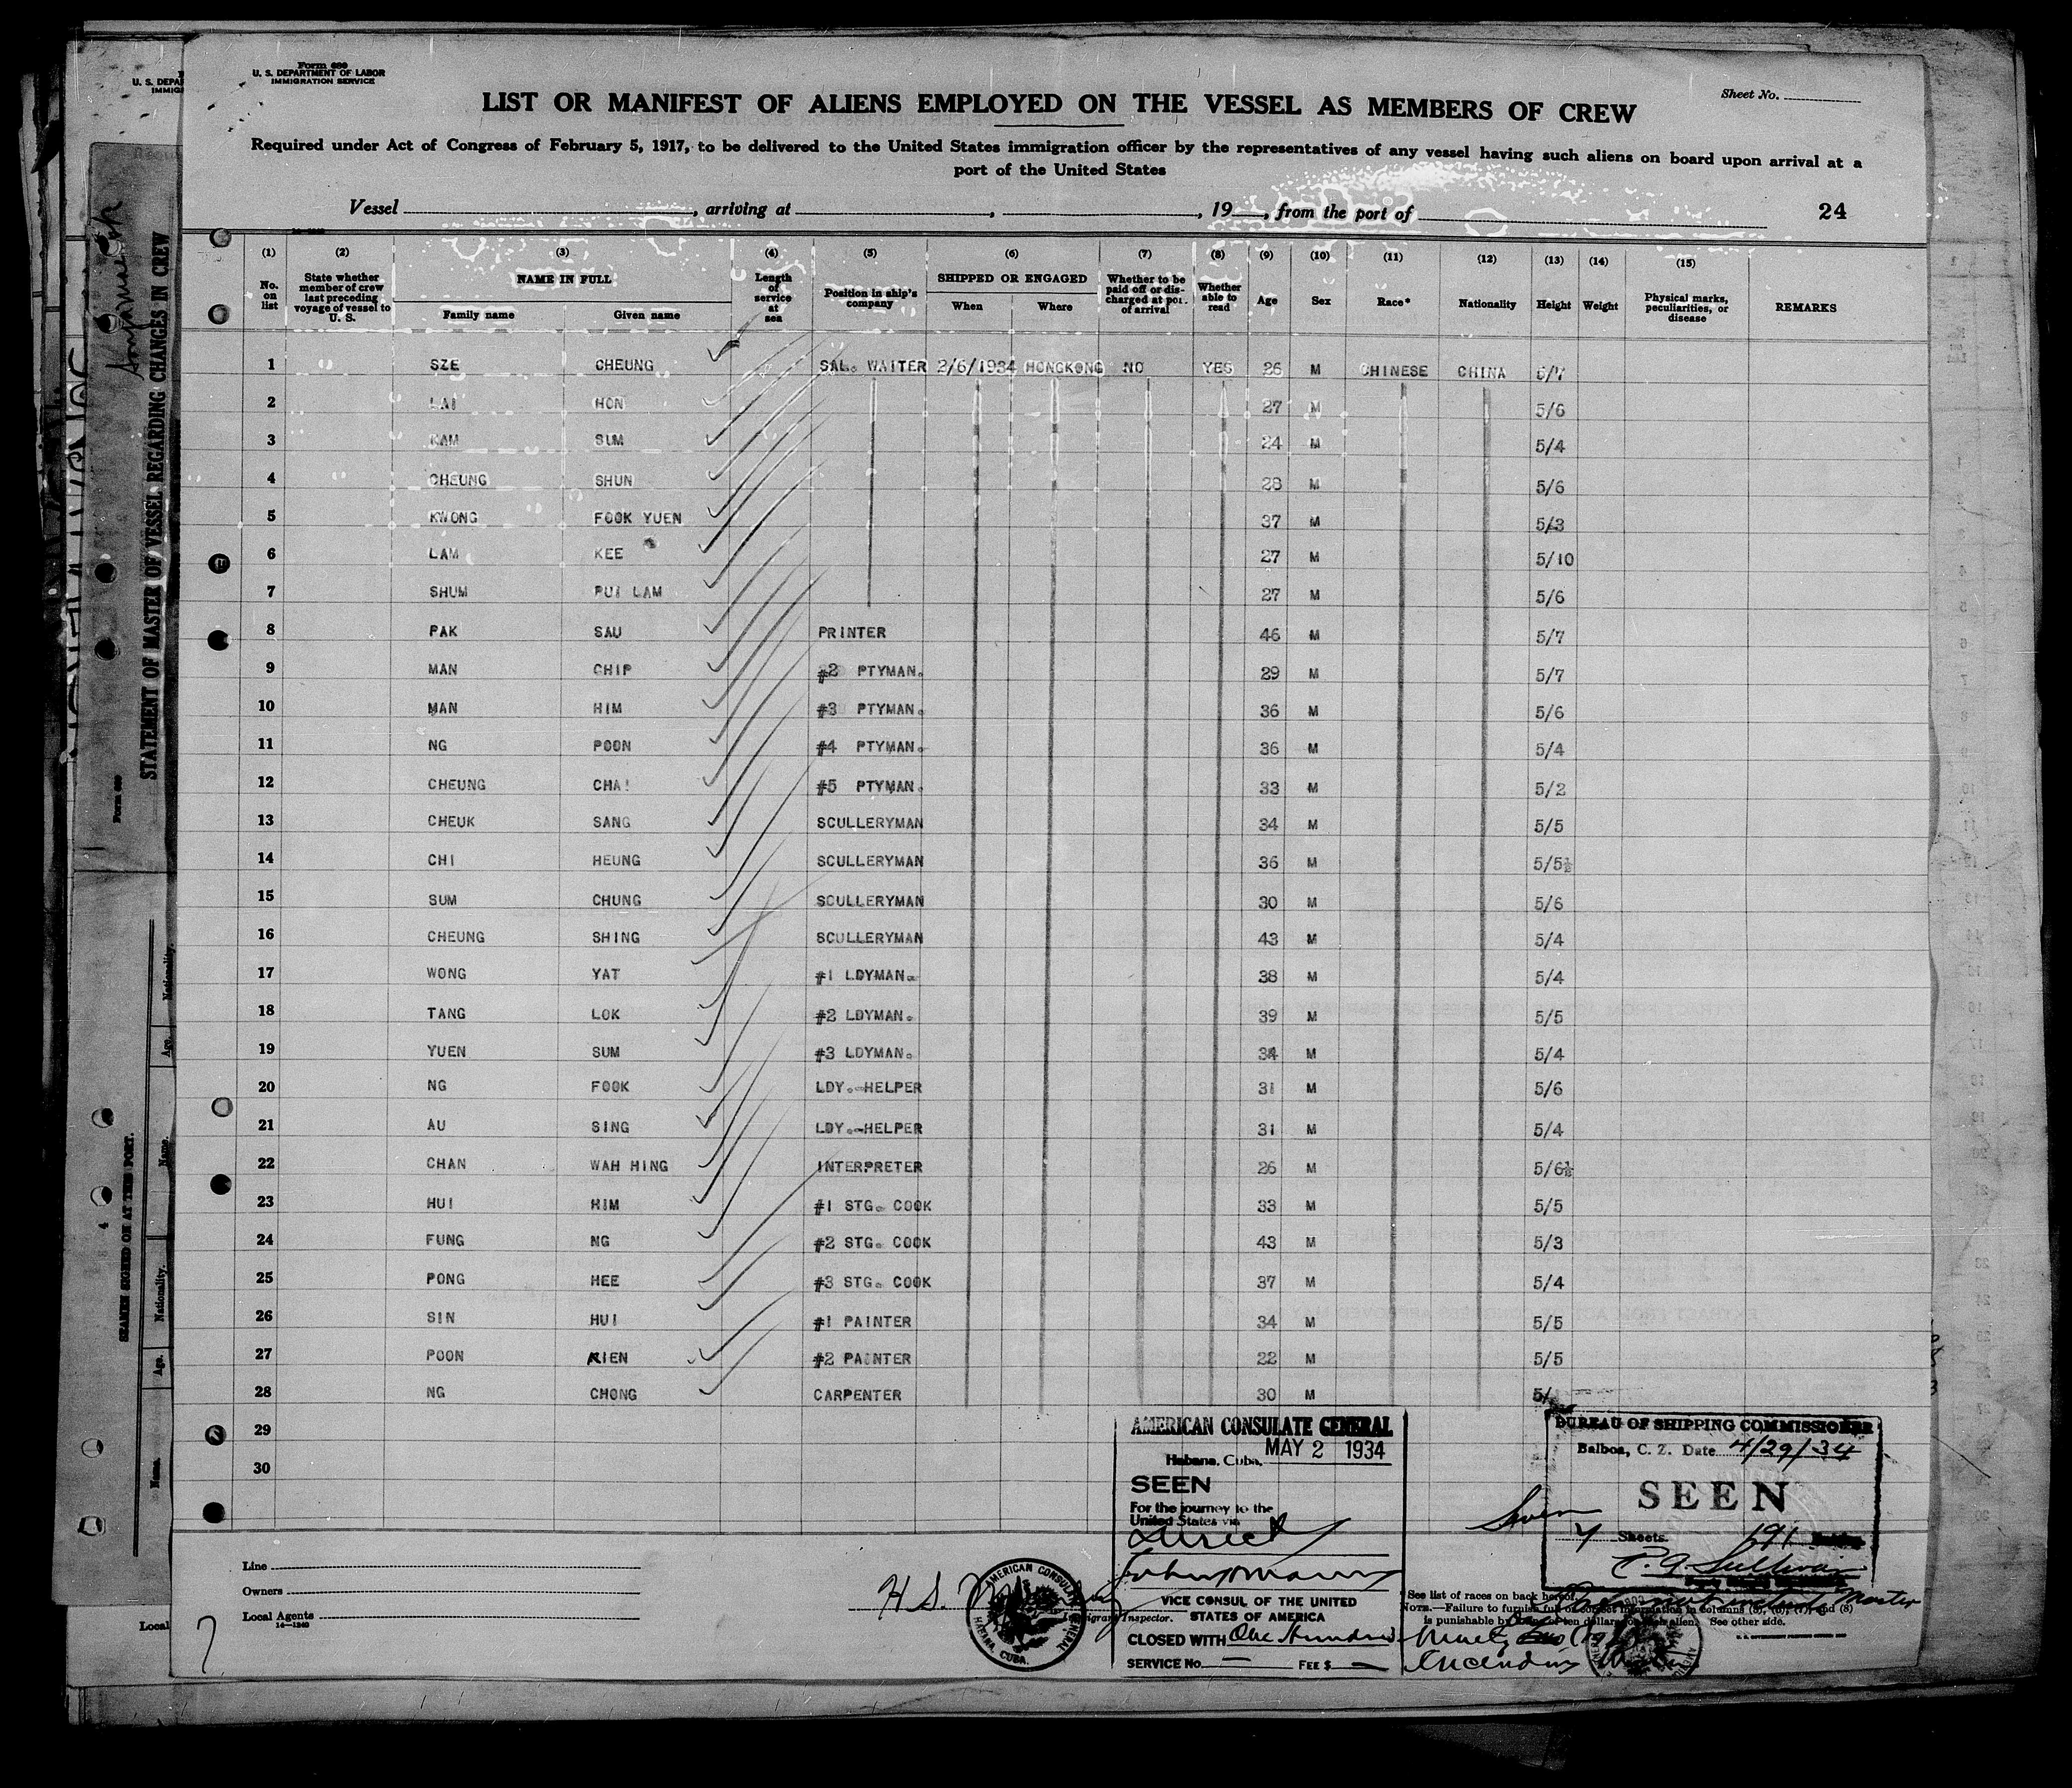 Form 680
U. S. DEPARTMENT OF LABOR
IMMIGRATION SERVICE
Sheet No.
LIST OR MANIFEST OF ALIENS EMPLOYED ON THE VESSEL AS MEMBERS OF CREW
Required under Act of Congress of February 5, 1917, to be delivered to the United States immigration officer by the representatives of any vessel having such aliens on board upon arrival at a
port of the United States
Vessel , arriving at , , 19 , from the port of 24
(1) No. on list (2) State whether member of crew last preceding voyage of vessel to U. S. (3) NAME IN FULL Family name Given name (4) Length of service at sea (5) Position in ship's company (6) SHIPPED OR ENGAGED When Where (7) Whether to be paid off or discharged at port of arrival (8) Whether able to read (9) Age (10) Sex (11) Race* (12) Nationality (13) Height (14) Weight (15) Physical marks, peculiarities, or disease REMARKS
1 SZE CHEUNG SAL. WAITER 2/6/1934 HONGKONG NO YES 26 M CHINESE CHINA 5/7
2 LAI HON 27 M 5/6
3 KAM SUM 24 M 5/4
4 CHEUNG SHUN 28 M 5/6
5 KWONG FOOK YUEN 37 M 5/3
6 LAM KEE 27 M 5/10
7 SHUM PUI LAM 27 M 5/6
8 PAK SAU PRINTER 46 M 5/7
9 MAN CHIP #2 PTYMAN. 29 M 5/7
10 MAN HIM #3 PTYMAN. 36 M 5/6
11 NG POON #4 PTYMAN. 36 M 5/4
12 CHEUNG CHAI #5 PTYMAN. 33 M 5/2
13 CHEUK SANG SCULLERYMAN 34 M 5/5
14 CHI HEUNG SCULLERYMAN 36 M 5/5½
15 SUM CHUNG SCULLERYMAN 30 M 5/6
16 CHEUNG SHING SCULLERYMAN 43 M 5/4
17 WONG YAT #1 LDYMAN. 38 M 5/4
18 TANG LOK #2 LDYMAN. 39 M 5/5
19 YUEN SUM #3 LDYMAN. 34 M 5/4
20 NG FOOK LDY.-HELPER 31 M 5/6
21 AU SING LDY.-HELPER 31 M 5/4
22 CHAN WAH HING INTERPRETER 26 M 5/6½
23 HUI HIM #1 STG. COOK 33 M 5/5
24 FUNG NG #2 STG. COOK 43 M 5/3
25 PONG HEE #3 STG. COOK 37 M 5/4
26 SIN HUI #1 PAINTER 34 M 5/5
27 POON KIEN #2 PAINTER 22 M 5/5
28 NG CHONG CARPENTER 30 M 5/
29
30
AMERICAN CONSULATE GENERAL
MAY 2 1934
Habana, Cuba,
SEEN
For the journey to the
United States via
direct
VICE CONSUL OF THE UNITED
STATES OF AMERICA
CLOSED WITH One Hundred Ninety
SERVICE No. — FEE $ —
AMERICAN CONSULATE GENERAL
HAVANA, CUBA.
BUREAU OF SHIPPING COMMISSIONER
Balboa, C. Z. Date 4/29/34
SEEN
Seven
7 Sheets 191
Sullivan
Line
Owners
Local Agents
14—1240
H. S.
Immigrant Inspector.
See list of races on back hereof.
NOTE.—Failure to furnish full or correct information in columns (5), (6), (7), and (8)
is punishable by a fine of ten dollars for each alien. See other side.
Master
STATEMENT OF MASTER OF VESSEL REGARDING CHANGES IN CREW
Form 689
SEAMEN SIGNED ON AT THIS PORT.
Name.
Age.
Nationality.
Name.
Age.
Nationality.
U. S. DEPA
IMMIG
Local